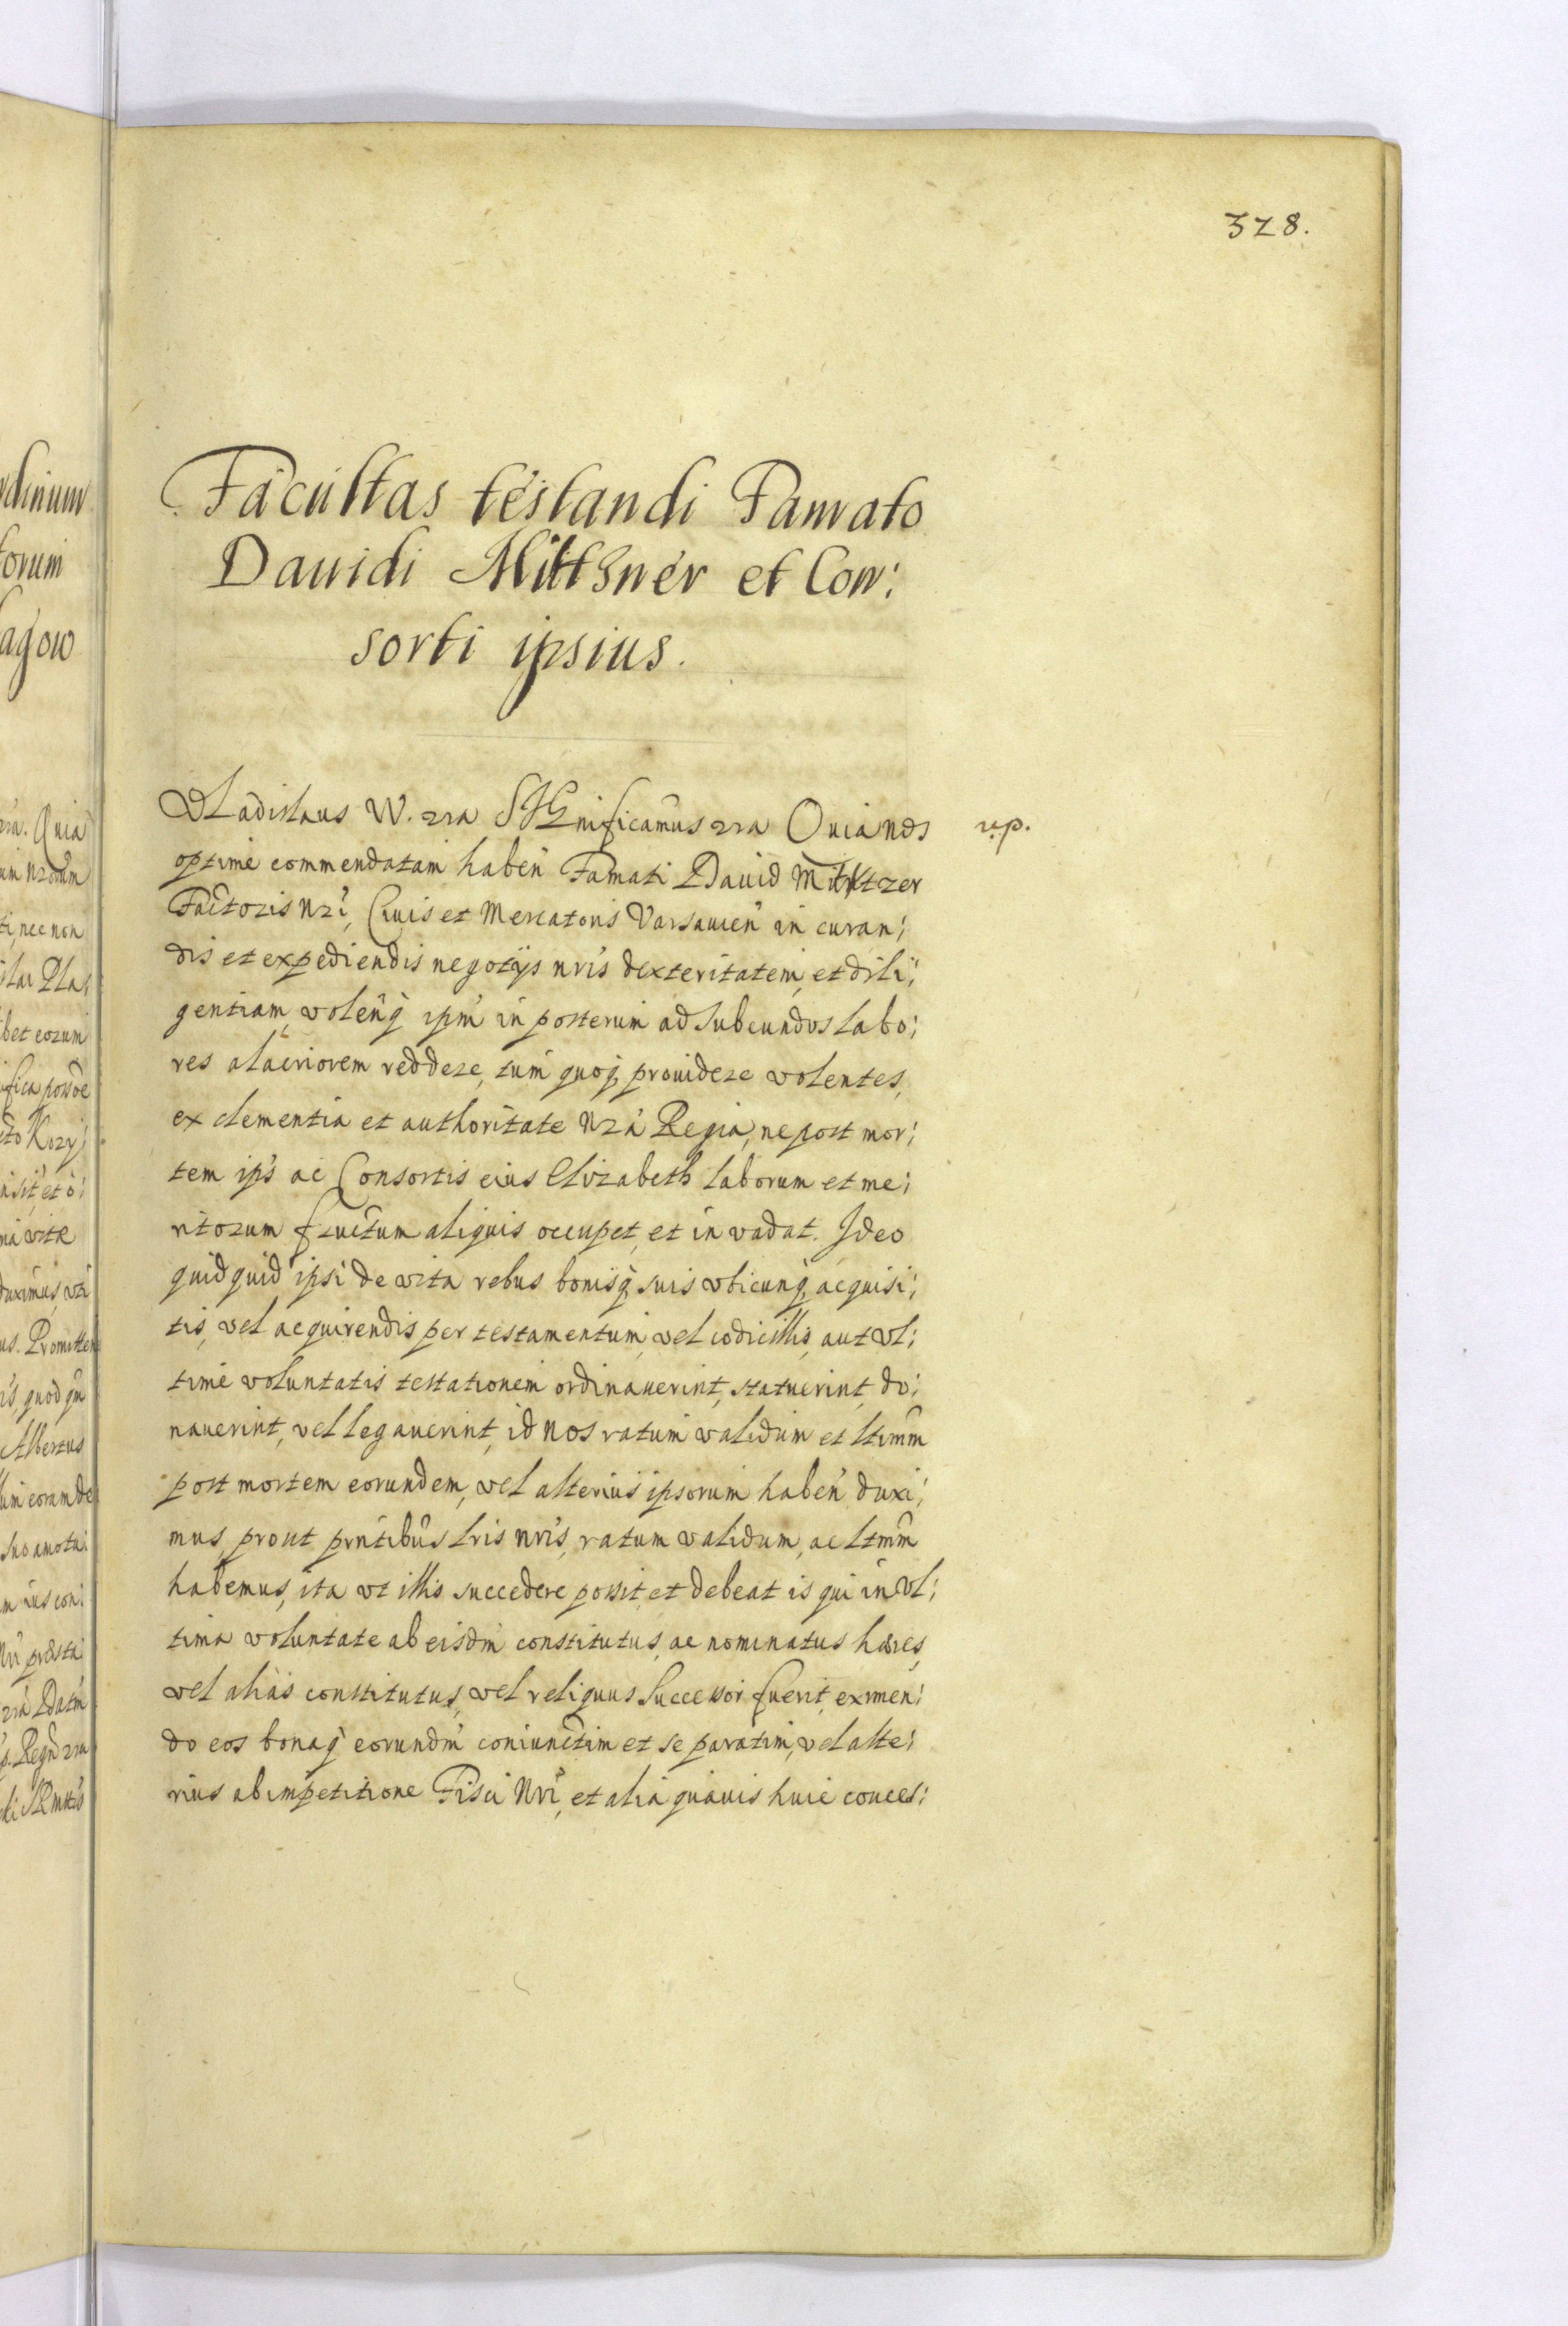 328.
Facultas testandi Famato
Dauidi Mittzner et Con:
sorti ipsius.
Vladislaus IV. rra SIGnificamus rra Quia nos
v.p.
optime commendatam haben Famati Dauid Mittzer
Factoris nri, Ciuis et Mercatoris Varsauien in curan:
dis et expediendis negotijs nris dexteritatem, et dili:
gentiam, volenq ipm in posterum ad subeundos labo:
res alacriorem reddere, tum quoq prouidere volentes,
ex clementia et authoritate nra Regia, ne post mor:
tem ips ac Consortis eius Elizabeth laborum et me:
ritorum fructum aliquis occupet, et inuadat. Ideo
quidquid ipsi de vita rebus bonisq suis vbicunq acquisi:
tis, vel acquirendis per testamentum, vel codicillis, aut vl:
time voluntatis testationem ordinauerint, statuerint, do:
nauerint, vel legauerint, id nos ratum validum et ltimm
post mortem eorundem, vel alterius ipsorum haben duxi:
mus, prout pntibus lris nris, ratum validum, ac ltmm
habemus, ita vt illis succedere possit, et debeat is qui in vl:
tima voluntate ab eisdm constitutus, ac nominatus hæres,
vel alias constitutus, vel reliquus Successor fuerit, eximen:
do eos bonaq eorundm coniunctim et separatim, vel alte:
rius ab impetitione Fisci Nri, et alia quauis huic conces: